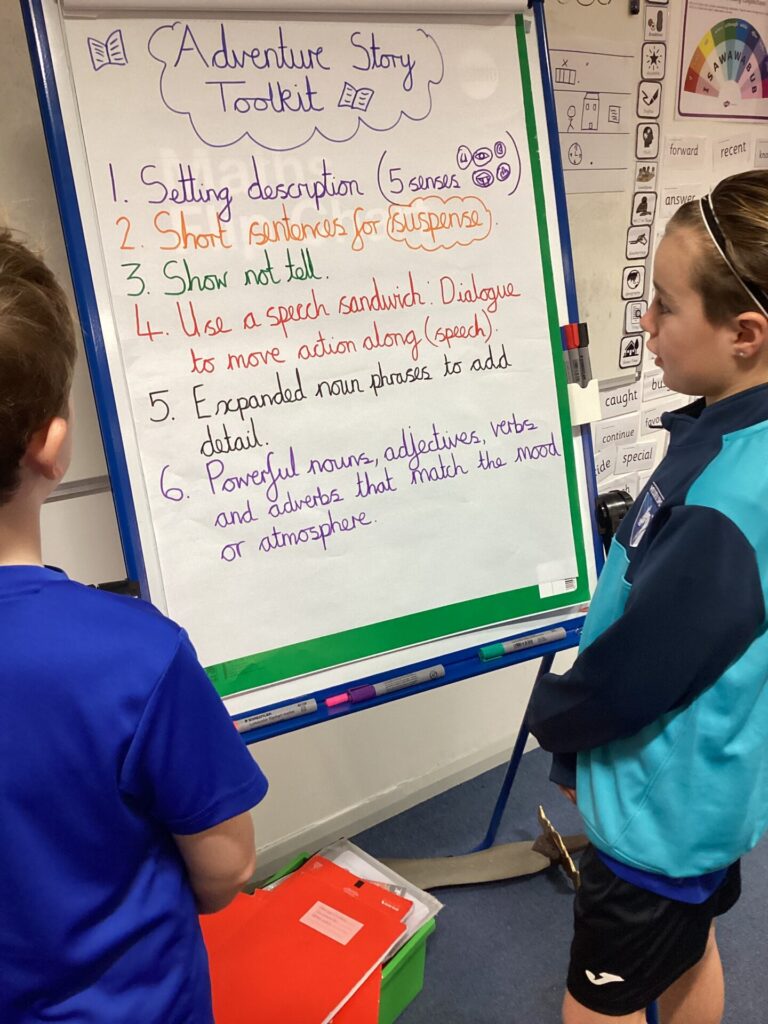 Adventure Story
Toolkit
Maths
Flip Chart
1. Setting description (5 senses)
2. Short sentences for suspense.
3. Show not tell.
4. Use a speech sandwich: Dialogue
to move action along (speech).
5. Expanded noun phrases to add
detail.
6. Powerful nouns, adjectives, verbs
and adverbs that match the mood
or atmosphere.
ISAWAWABUB
forward
recent
answer
caught
continue
special